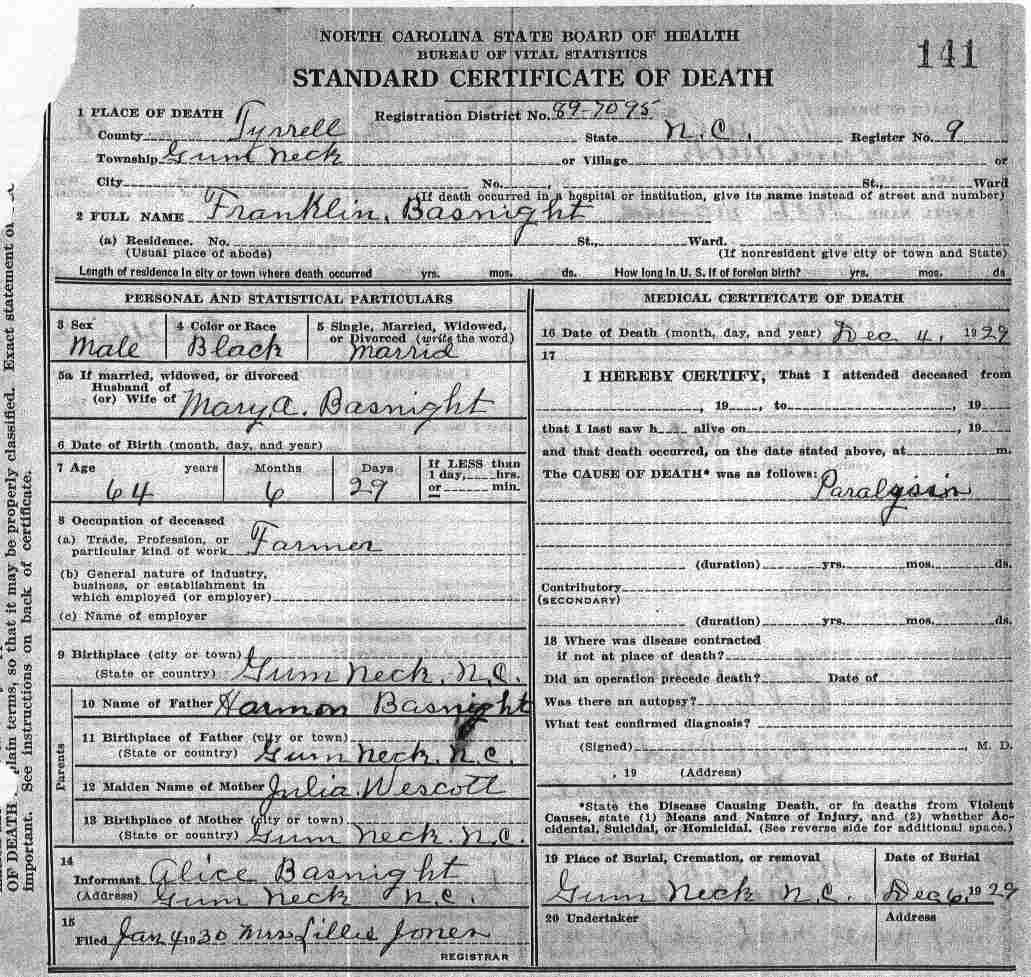 NORTH CAROLINA STATE BOARD OF HEALTH
BUREAU OF VITAL STATISTICS
STANDARD CERTIFICATE OF DEATH
141
1 PLACE OF DEATH
Registration District No. 89-7095
County Tyrrell State N.C. Register No. 9
Township Gum Neck or Village or
City No. , St., Ward
(If death occurred in a hospital or institution, give its name instead of street and number)
2 FULL NAME Franklin, Basnight
(a) Residence. No. St., Ward.
(Usual place of abode) (If nonresident give city or town and State)
Length of residence in city or town where death occurred yrs. mos. ds. How long in U. S. if of foreign birth? yrs. mos. ds
PERSONAL AND STATISTICAL PARTICULARS
3 Sex
Male
4 Color or Race
Black
5 Single, Married, Widowed,
or Divorced (write the word)
Marrid
5a If married, widowed, or divorced
Husband of
(or) Wife of Mary a. Basnight
6 Date of Birth (month, day, and year)
7 Age years Months Days
64 6 29
If LESS than
1 day, hrs.
or min.
8 Occupation of deceased
(a) Trade, Profession, or
particular kind of work Farmer
(b) General nature of industry,
business, or establishment in
which employed (or employer)
(c) Name of employer
9 Birthplace (city or town)
(State or country) Gum Neck, N.C.
Parents
10 Name of Father Harmon Basnight
11 Birthplace of Father (city or town)
(State or country) Gum Neck. N.C.
12 Maiden Name of Mother Julia Wescott
13 Birthplace of Mother (city or town)
(State or country) Gum Neck N.C.
14
Informant Alice Basnight
(Address) Gum Neck N.C.
15
Filed Jan 4 1930 Mrs Lillie Jones
REGISTRAR
MEDICAL CERTIFICATE OF DEATH
16 Date of Death (month, day, and year) Dec 4, 1929
17
I HEREBY CERTIFY, That I attended deceased from
, 19 , to , 19
that I last saw h alive on , 19
and that death occurred, on the date stated above, at m.
The CAUSE OF DEATH* was as follows:
Paralysis
(duration) yrs. mos. ds.
Contributory
(SECONDARY)
(duration) yrs. mos. ds.
18 Where was disease contracted
if not at place of death?
Did an operation precede death? Date of
Was there an autopsy?
What test confirmed diagnosis?
(Signed) , M. D.
, 19 (Address)
*State the Disease Causing Death, or in deaths from Violent
Causes, state (1) Means and Nature of Injury, and (2) whether Ac-
cidental, Suicidal, or Homicidal. (See reverse side for additional space.)
19 Place of Burial, Cremation, or removal
Gum Neck N.C.
Date of Burial
Dec 6, 1929
20 Undertaker
Address
OF DEATH plain terms, so that it may be properly classified. Exact statement of
important. See instructions on back of certificate.